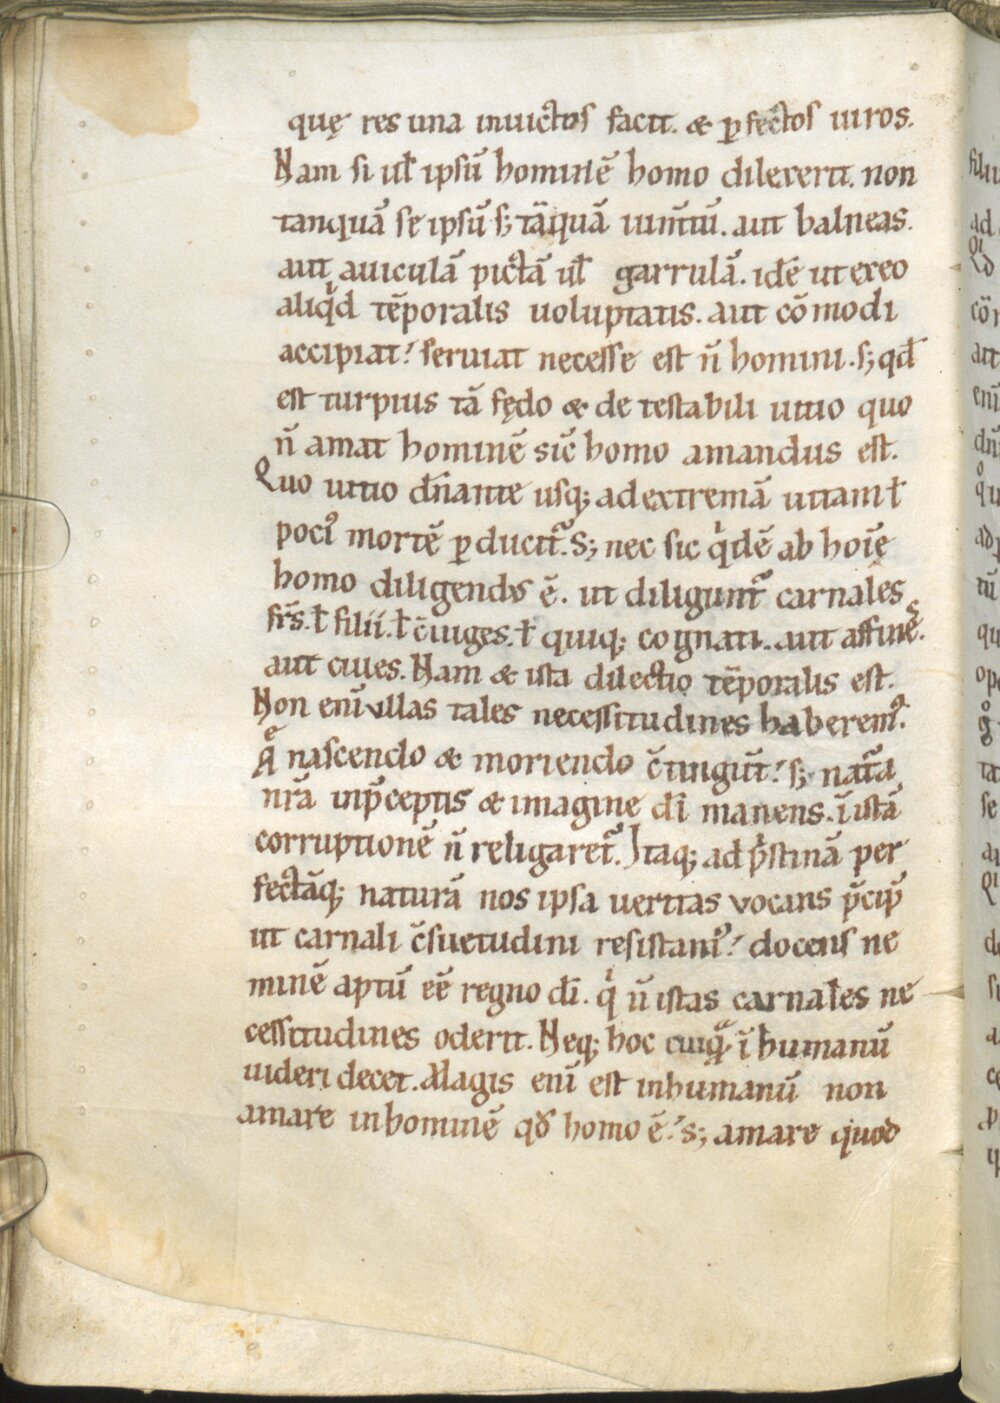 quę res una inuictos facit. & ꝑfectos uiros.
Nam si ul̃ ipsũ hominẽ homo dilexerit. non
tanquã se ipsũ s; tãquã ium̃tũ. aut balneas.
aut auiculã pictã ul̃ garrulã. idẽ ut ex eo
aliqͥd tẽporalis uoluptatis. aut cõmodi
accipiat: seruiat necesse est ñ homini. s; qd̃
est turpius tã fędo & detestabili uitio quo
ñ amat hominẽ sic̃ homo amandus est.
Quo uitio dñante usq; ad extremã uitam ł
pociꝰ mortẽ ꝑducitᷓ. S; nec sic qͥdẽ ab hoĩe
homo diligendus ẽ. ut diliguntᷓ carnales
fr̃s. ł filii. ł c̃iuges. ł quiq; cognati. aut affinẽs.
aut ciues. Nam & ista dilectio tẽporalis est.
Non enĩ ullas tales necessitudines haberemꝰ.
q̃ nascendo & moriendo c̃tingũt: s; natᷓa
nr̃a in p̃ceptis & imagine dĩ manens. ĩ istã
corruptionẽ ñ religaretᷓ. Itaq; ad pͥstinã per
fectãq; naturã nos ipsa ueritas vocans p̃cip̃
ut carnali c̃suetudini resistamꝰ: docens ne
minẽ aptũ eẽ regno dĩ. qͥ ñ istas carnales ne
cessitudines oderit. Neq; hoc cuiqᷓ̃ ĩhumanũ
uideri decet. Magis enĩ est inhumanũ non
amare in hominẽ qđ homo ẽ: s; amare quod